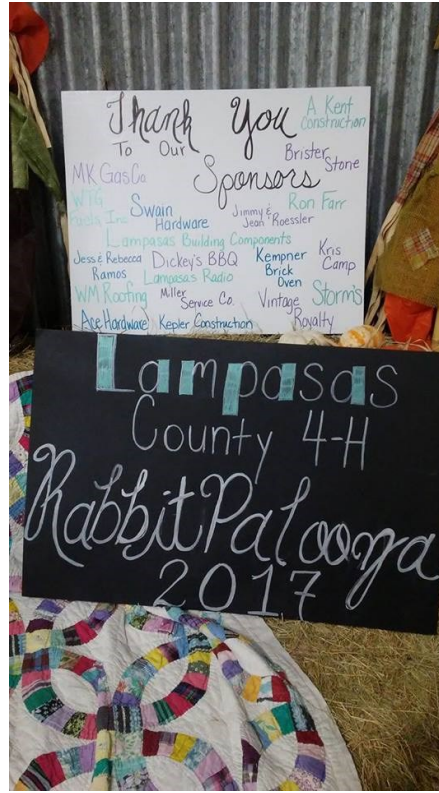 Thank You
To Our
Sponsors
A Kent
Construction
Brister
Stone
MK Gas Co
WTG
Fuels, Inc
Swain
Hardware
Jimmy &
Jean Roessler
Ron Farr
Lampasas Building Components
Jess & Rebecca
Ramos
Dickey's BBQ
Kempner
Brick
Oven
Kris
Camp
Lampasas Radio
WM Roofing
Miller
Service Co.
Vintage
Royalty
Storm's
Ace Hardware
Kepler Construction
Lampasas
County 4-H
RabbitPalooza
2017